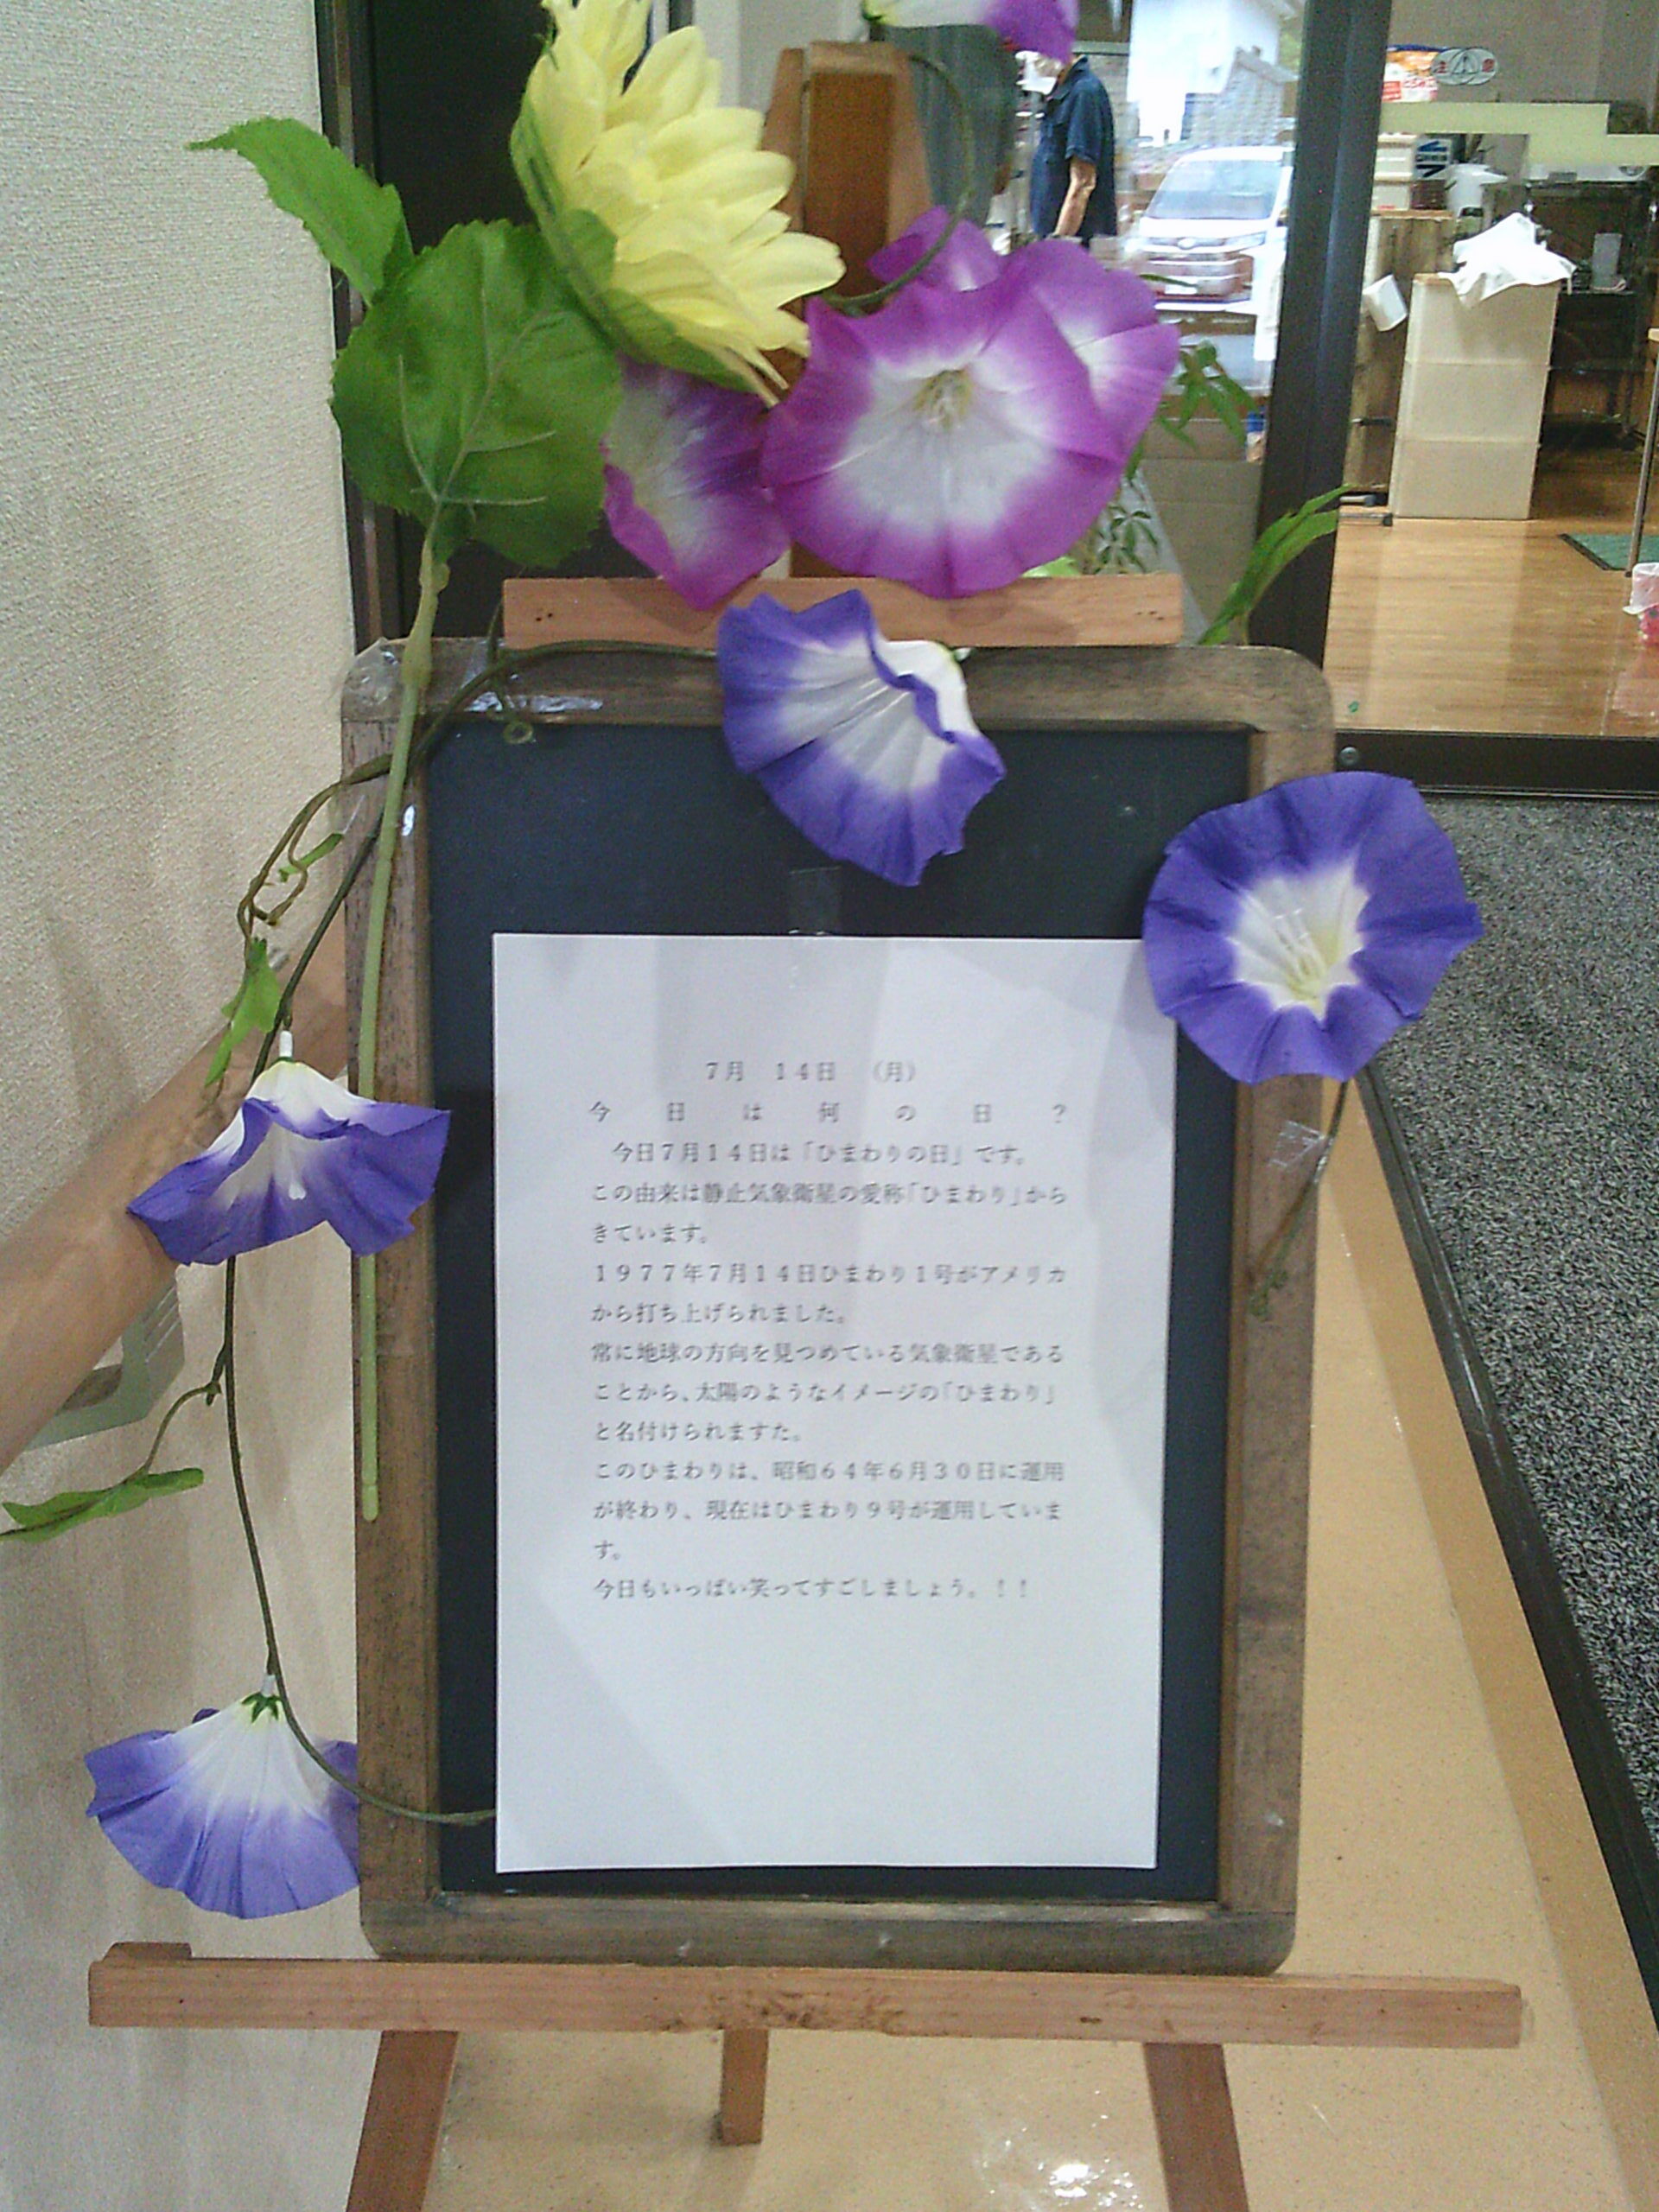 注意
7月 14日 (月)
今日は何の日?
今日7月14日は「ひまわりの日」です。
この由来は静止気象衛星の愛称「ひまわり」から
きています。
1977年7月14日ひまわり1号がアメリカ
から打ち上げられました。
常に地球の方向を見つめている気象衛星である
ことから、太陽のようなイメージの「ひまわり」
と名付けられますた。
このひまわりは、昭和64年6月30日に運用
が終わり、現在はひまわり9号が運用していま
す。
今日もいっぱい笑ってすごしましょう。!!